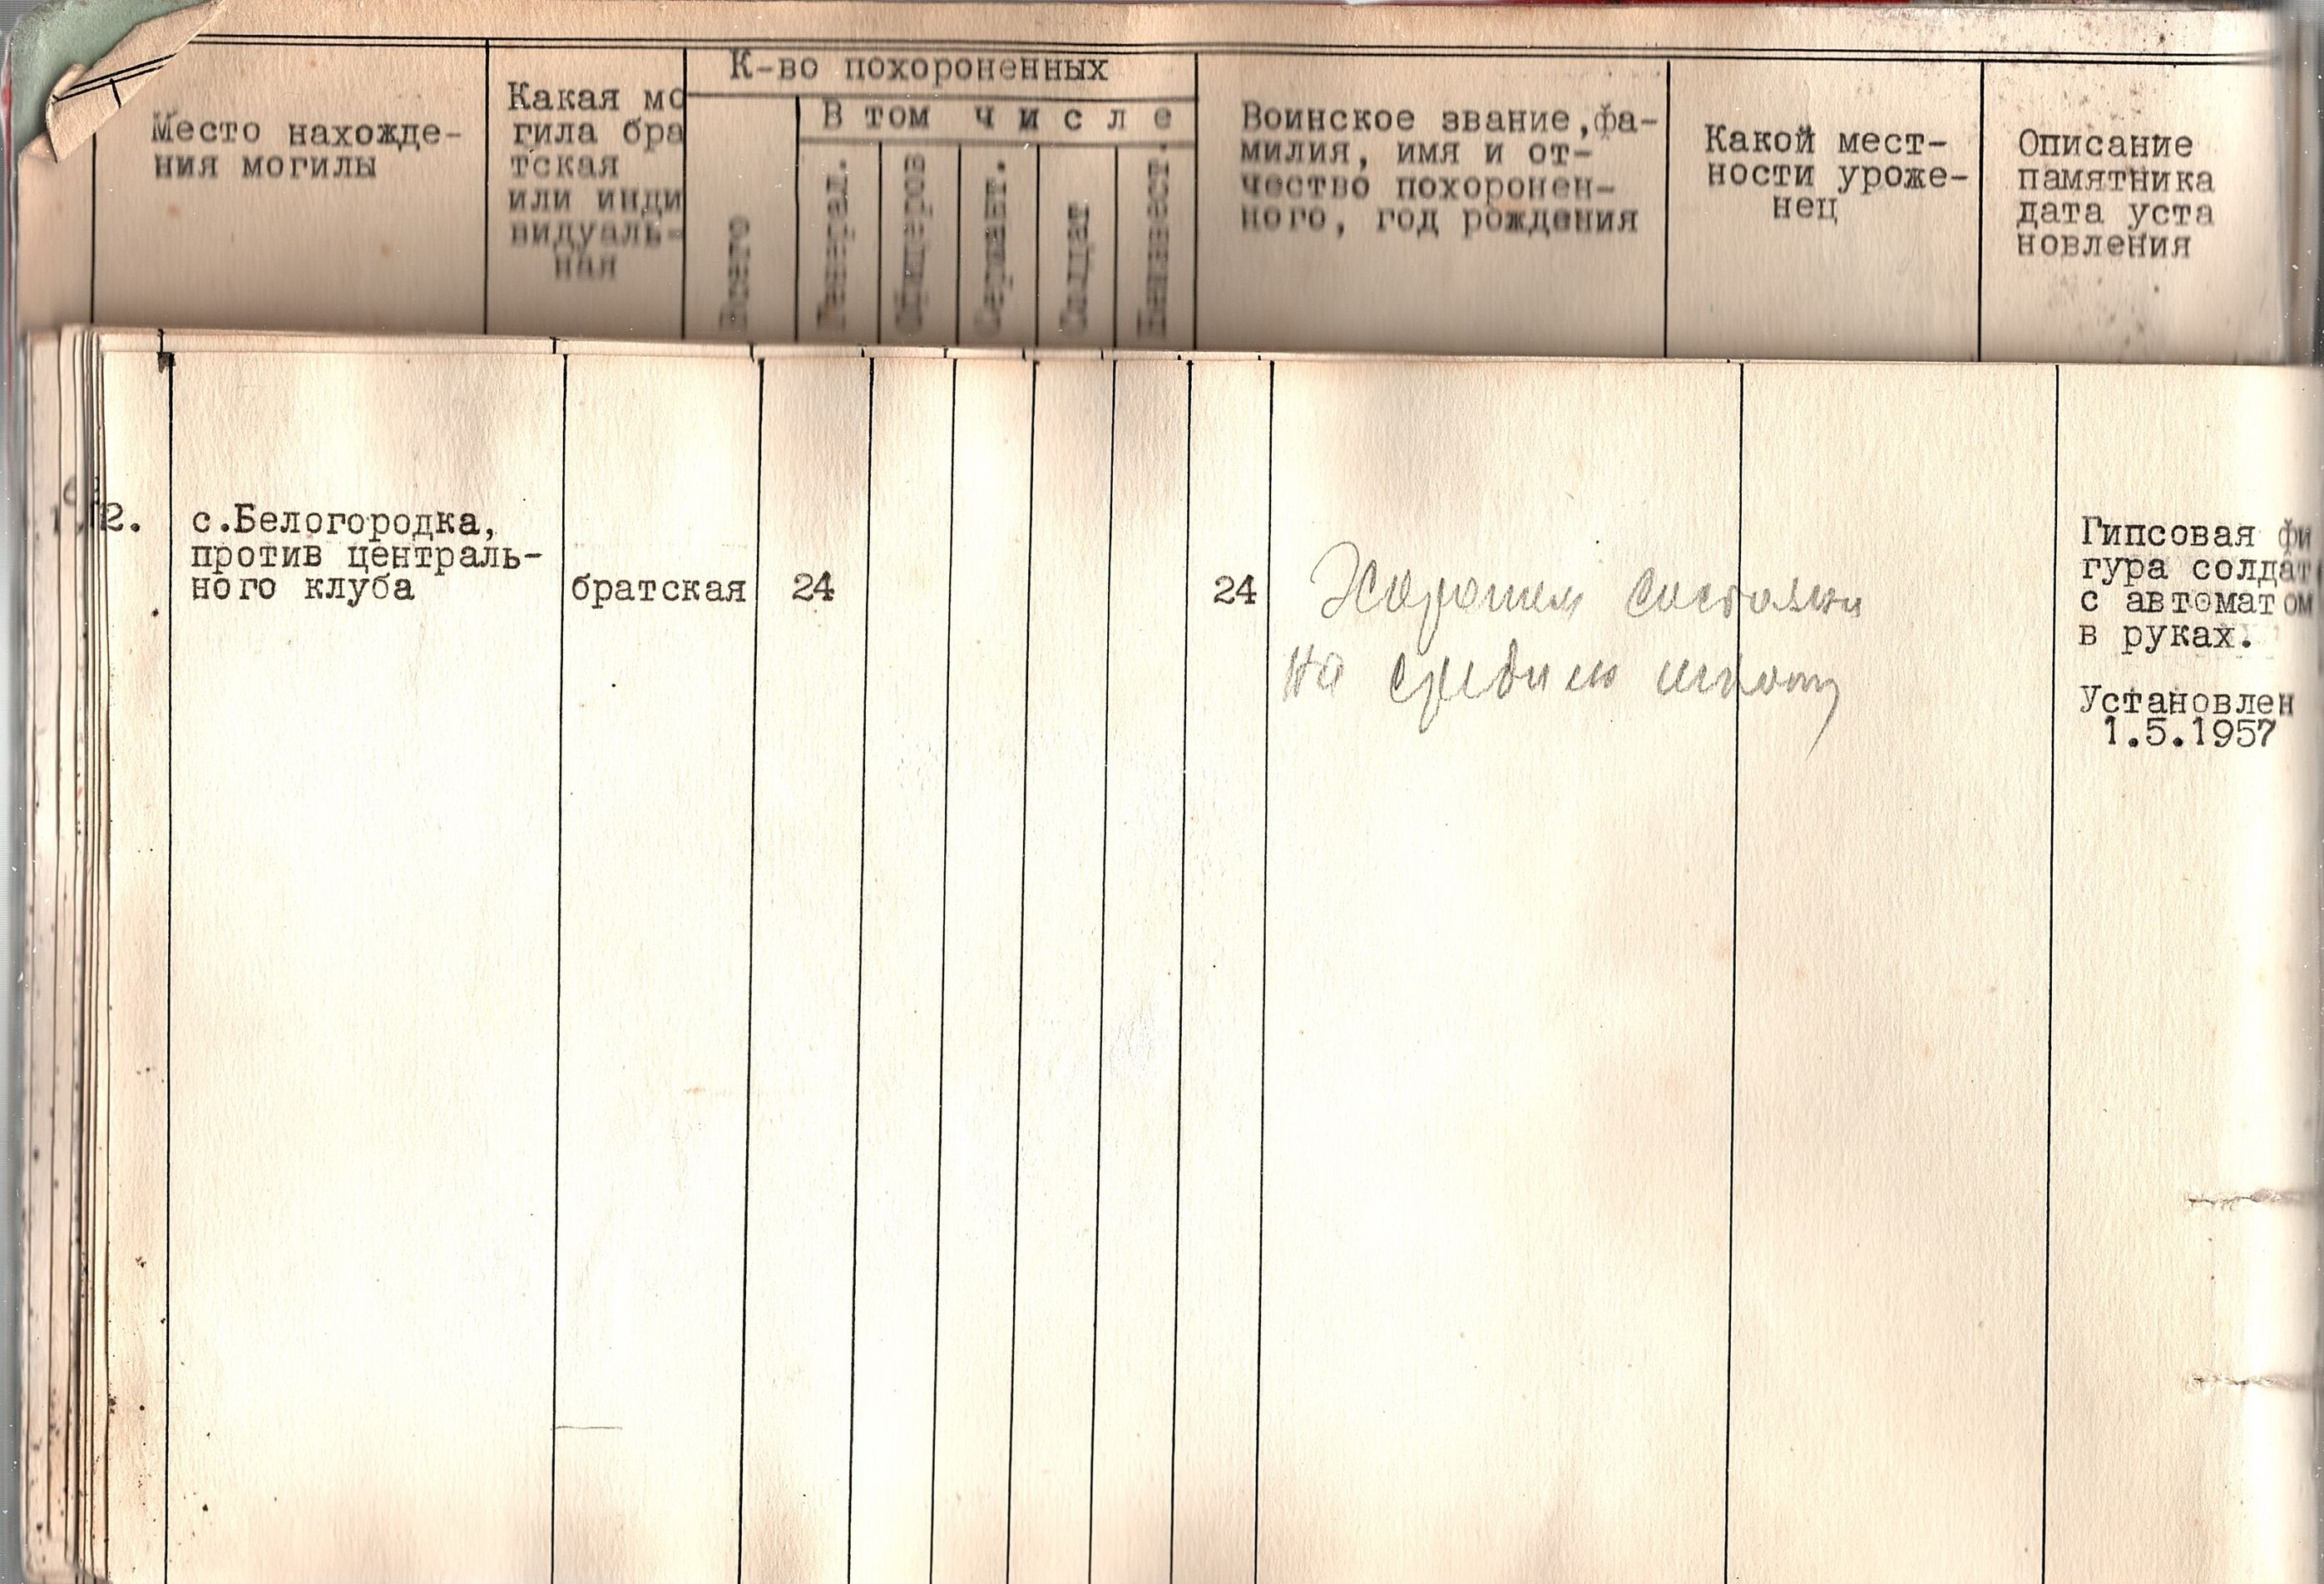 К-во похороненных
Место нахожде-
ния могилы
Какая мо
гила бра
тская
или инди
видуаль-
ная
Всего
В том числе
Генерал.
Офицеров
Сержант.
Солдат
Неизвест.
Воинское звание, фа-
милия, имя и от-
чество похоронен-
ного, год рождения
Какой мест-
ности уроже-
нец
Описание
памятника
дата уста
новления
2.
с.Белогородка,
против централь-
ного клуба
братская
24
24
на среднюю школу
Гипсовая фи
гура солдат
с автоматом
в руках.
Установлен
1.5.1957